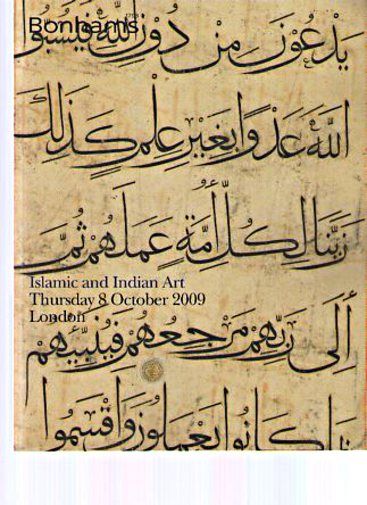 Bonhams
يدعون من دون الله فيسبوا
الله عدوا بغير علم كذلك
زينا لكل أمة عملهم ثم
Islamic and Indian Art
Thursday 8 October 2009
London
إلى ربهم مرجعهم فينبئهم
بما كانوا يعملون وأقسموا